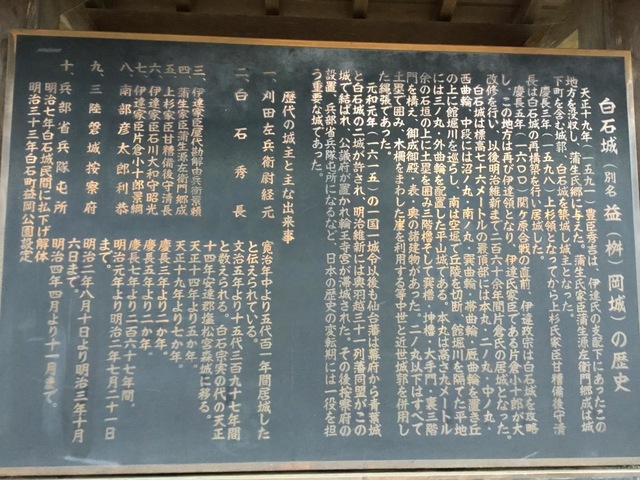 白石城（別名 益（桝）岡城）の歴史
天正十九年（一五九一）豊臣秀吉は、伊達氏の支配下にあったこの
地方を没収し、蒲生氏郷に与えた。蒲生氏家臣蒲生源左衛門郷成は城
下町を含む城郭、白石城を築城し城主となった。
慶長三年（一五九八）上杉領となってから上杉氏家臣甘糟備後守清
長は白石城の再構築を行い居城した。
慶長五年（一六〇〇）関ヶ原合戦の直前、伊達政宗は白石城を攻略
し、この地方は再び伊達領となり、伊達氏家臣である片倉小十郎が大
改修を行い、以後明治維新まで二百六十余年間片倉氏の居城となった。
白石城は標高七十六メートルの最頂部には本丸・二ノ丸・中ノ丸・
西曲輪、中段には沼ノ丸・南ノ丸・巽曲輪・帯曲輪・厩曲輪を置き丘
の上に館堀川を巡らし、南は空堀で丘陵を切断、館堀川を隔てた平地
には三ノ丸・外曲輪を配置した平山城である。本丸は高さ九メートル
余の石垣の上に土塁を囲み三階櫓そして巽櫓・坤櫓・大手門・裏三階
門を構え、御成御殿、表・奥の諸建物があった。二ノ丸以下はすべて
土塁で囲み、木柵をまわした崖を利用する等中世と近世城郭を併用し
た縄張であった。
元和元年（一六一五）の一国一城令以後も仙台藩は幕府から青葉城
と白石城の二城が許され、明治維新には奥羽越三十一列藩同盟がこの
城で結ばれ、公議府が置かれ輪王寺宮が滞城された。その後按察府の
設置、兵部省兵隊屯所になるなど、日本の歴史の変転期には一役を担
う重要な城であった。
歴代の城主と主な出来事
一、刈田左兵衛尉経元 寛治年中より五代百一年間居城した
と伝えられている。
二、白石秀長 文治五年より十五代三百九十七年間
と数えられる。白石宗実の代の天正
十四年安達郡塩松宮森城に移る。
三、伊達家臣屋代勘解由兵衛景頼 天正十四年より五か年。
四、蒲生家臣蒲生源左衛門郷成 天正十九年より七か年。
五、上杉家臣甘糟備後守清長 慶長三年より二か年。
六、伊達家臣石川大和守昭光 慶長五年より二か年。
七、伊達家臣片倉小十郎景綱 慶長七年より二百六十七年間。
八、南部彦太郎利恭 明治元年より明治二年七月二十一日
まで。
九、三陸磐城按察府 明治二年八月十日より明治三年十月
六日まで。
十、兵部省兵隊屯所 明治四年四月より十一月まで。
明治七年白石城民間に払下げ解体
明治三十三年白石町益岡公園設定